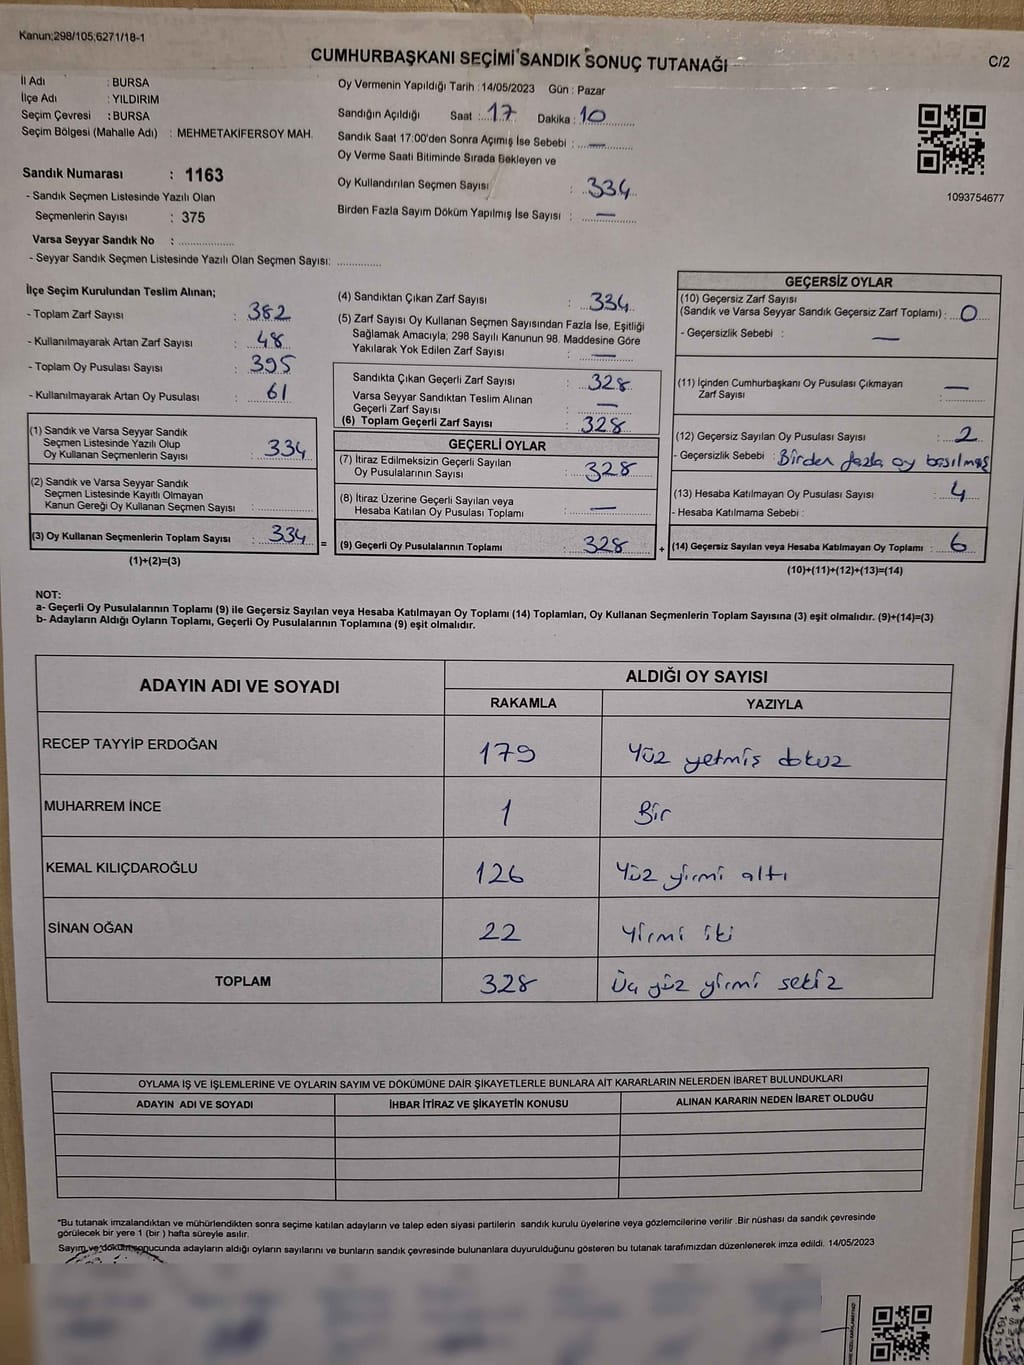 Kanun;298/105;6271/18-1
CUMHURBAŞKANI SEÇİMİ SANDIK SONUÇ TUTANAĞI
C/2
İl Adı : BURSA
İlçe Adı : YILDIRIM
Seçim Çevresi : BURSA
Seçim Bölgesi (Mahalle Adı) : MEHMETAKİFERSOY MAH.
Sandık Numarası : 1163
- Sandık Seçmen Listesinde Yazılı Olan
Seçmenlerin Sayısı : 375
Varsa Seyyar Sandık No : ................
- Seyyar Sandık Seçmen Listesinde Yazılı Olan Seçmen Sayısı: .............
Oy Vermenin Yapıldığı Tarih : 14/05/2023 Gün : Pazar
Sandığın Açıldığı Saat : 17 Dakika : 10
Sandık Saat 17:00'den Sonra Açımış İse Sebebi : —
Oy Verme Saati Bitiminde Sırada Bekleyen ve
Oy Kullandırılan Seçmen Sayısı : 334
Birden Fazla Sayım Döküm Yapılmış İse Sayısı : —
1093754677
İlçe Seçim Kurulundan Teslim Alınan;
- Toplam Zarf Sayısı : 382
- Kullanılmayarak Artan Zarf Sayısı : 48
- Toplam Oy Pusulası Sayısı : 395
- Kullanılmayarak Artan Oy Pusulası : 61
(1) Sandık ve Varsa Seyyar Sandık
Seçmen Listesinde Yazılı Olup
Oy Kullanan Seçmenlerin Sayısı : 334
(2) Sandık ve Varsa Seyyar Sandık
Seçmen Listesinde Kayıtlı Olmayan
Kanun Gereği Oy Kullanan Seçmen Sayısı : .............
(3) Oy Kullanan Seçmenlerin Toplam Sayısı : 334 =
(1)+(2)=(3)
(4) Sandıktan Çıkan Zarf Sayısı : 334
(5) Zarf Sayısı Oy Kullanan Seçmen Sayısından Fazla İse, Eşitliği
Sağlamak Amacıyla; 298 Sayılı Kanunun 98. Maddesine Göre
Yakılarak Yok Edilen Zarf Sayısı : —
Sandıkta Çıkan Geçerli Zarf Sayısı : 328
Varsa Seyyar Sandıktan Teslim Alınan
Geçerli Zarf Sayısı : —
(6) Toplam Geçerli Zarf Sayısı : 328
GEÇERLİ OYLAR
(7) İtiraz Edilmeksizin Geçerli Sayılan
Oy Pusulalarının Sayısı : 328
(8) İtiraz Üzerine Geçerli Sayılan veya
Hesaba Katılan Oy Pusulası Toplamı : —
(9) Geçerli Oy Pusulalarının Toplamı : 328 +
GEÇERSİZ OYLAR
(10) Geçersiz Zarf Sayısı
(Sandık ve Varsa Seyyar Sandık Geçersiz Zarf Toplamı) : 0
- Geçersizlik Sebebi : —
(11) İçinden Cumhurbaşkanı Oy Pusulası Çıkmayan
Zarf Sayısı : —
(12) Geçersiz Sayılan Oy Pusulası Sayısı : 2
- Geçersizlik Sebebi : Birden fazla oy basılmış
(13) Hesaba Katılmayan Oy Pusulası Sayısı : 4
- Hesaba Katılmama Sebebi :
(14) Geçersiz Sayılan veya Hesaba Katılmayan Oy Toplamı : 6
(10)+(11)+(12)+(13)=(14)
NOT:
a- Geçerli Oy Pusulalarının Toplamı (9) ile Geçersiz Sayılan veya Hesaba Katılmayan Oy Toplamı (14) Toplamları, Oy Kullanan Seçmenlerin Toplam Sayısına (3) eşit olmalıdır. (9)+(14)=(3)
b- Adayların Aldığı Oyların Toplamı, Geçerli Oy Pusulalarının Toplamına (9) eşit olmalıdır.
ADAYIN ADI VE SOYADI
ALDIĞI OY SAYISI
RAKAMLA YAZIYLA
RECEP TAYYİP ERDOĞAN 179 Yüz yetmiş dokuz
MUHARREM İNCE 1 Bir
KEMAL KILIÇDAROĞLU 126 Yüz yirmi altı
SİNAN OĞAN 22 Yirmi iki
TOPLAM 328 Üç yüz yirmi sekiz
OYLAMA İŞ VE İŞLEMLERİNE VE OYLARIN SAYIM VE DÖKÜMÜNE DAİR ŞİKAYETLERLE BUNLARA AİT KARARLARIN NELERDEN İBARET BULUNDUKLARI
ADAYIN ADI VE SOYADI İHBAR İTİRAZ VE ŞİKAYETİN KONUSU ALINAN KARARIN NEDEN İBARET OLDUĞU
"Bu tutanak imzalandıktan ve mühürlendikten sonra seçime katılan adayların ve talep eden siyasi partilerin sandık kurulu üyelerine veya gözlemcilerine verilir .Bir nüshası da sandık çevresinde
görülecek bir yere 1 (bir ) hafta süreyle asılır.
Sayım ve döküm sonucunda adayların aldığı oyların sayılarını ve bunların sandık çevresinde bulunanlara duyurulduğunu gösteren bu tutanak tarafımızdan düzenlenerek imza edildi. 14/05/2023